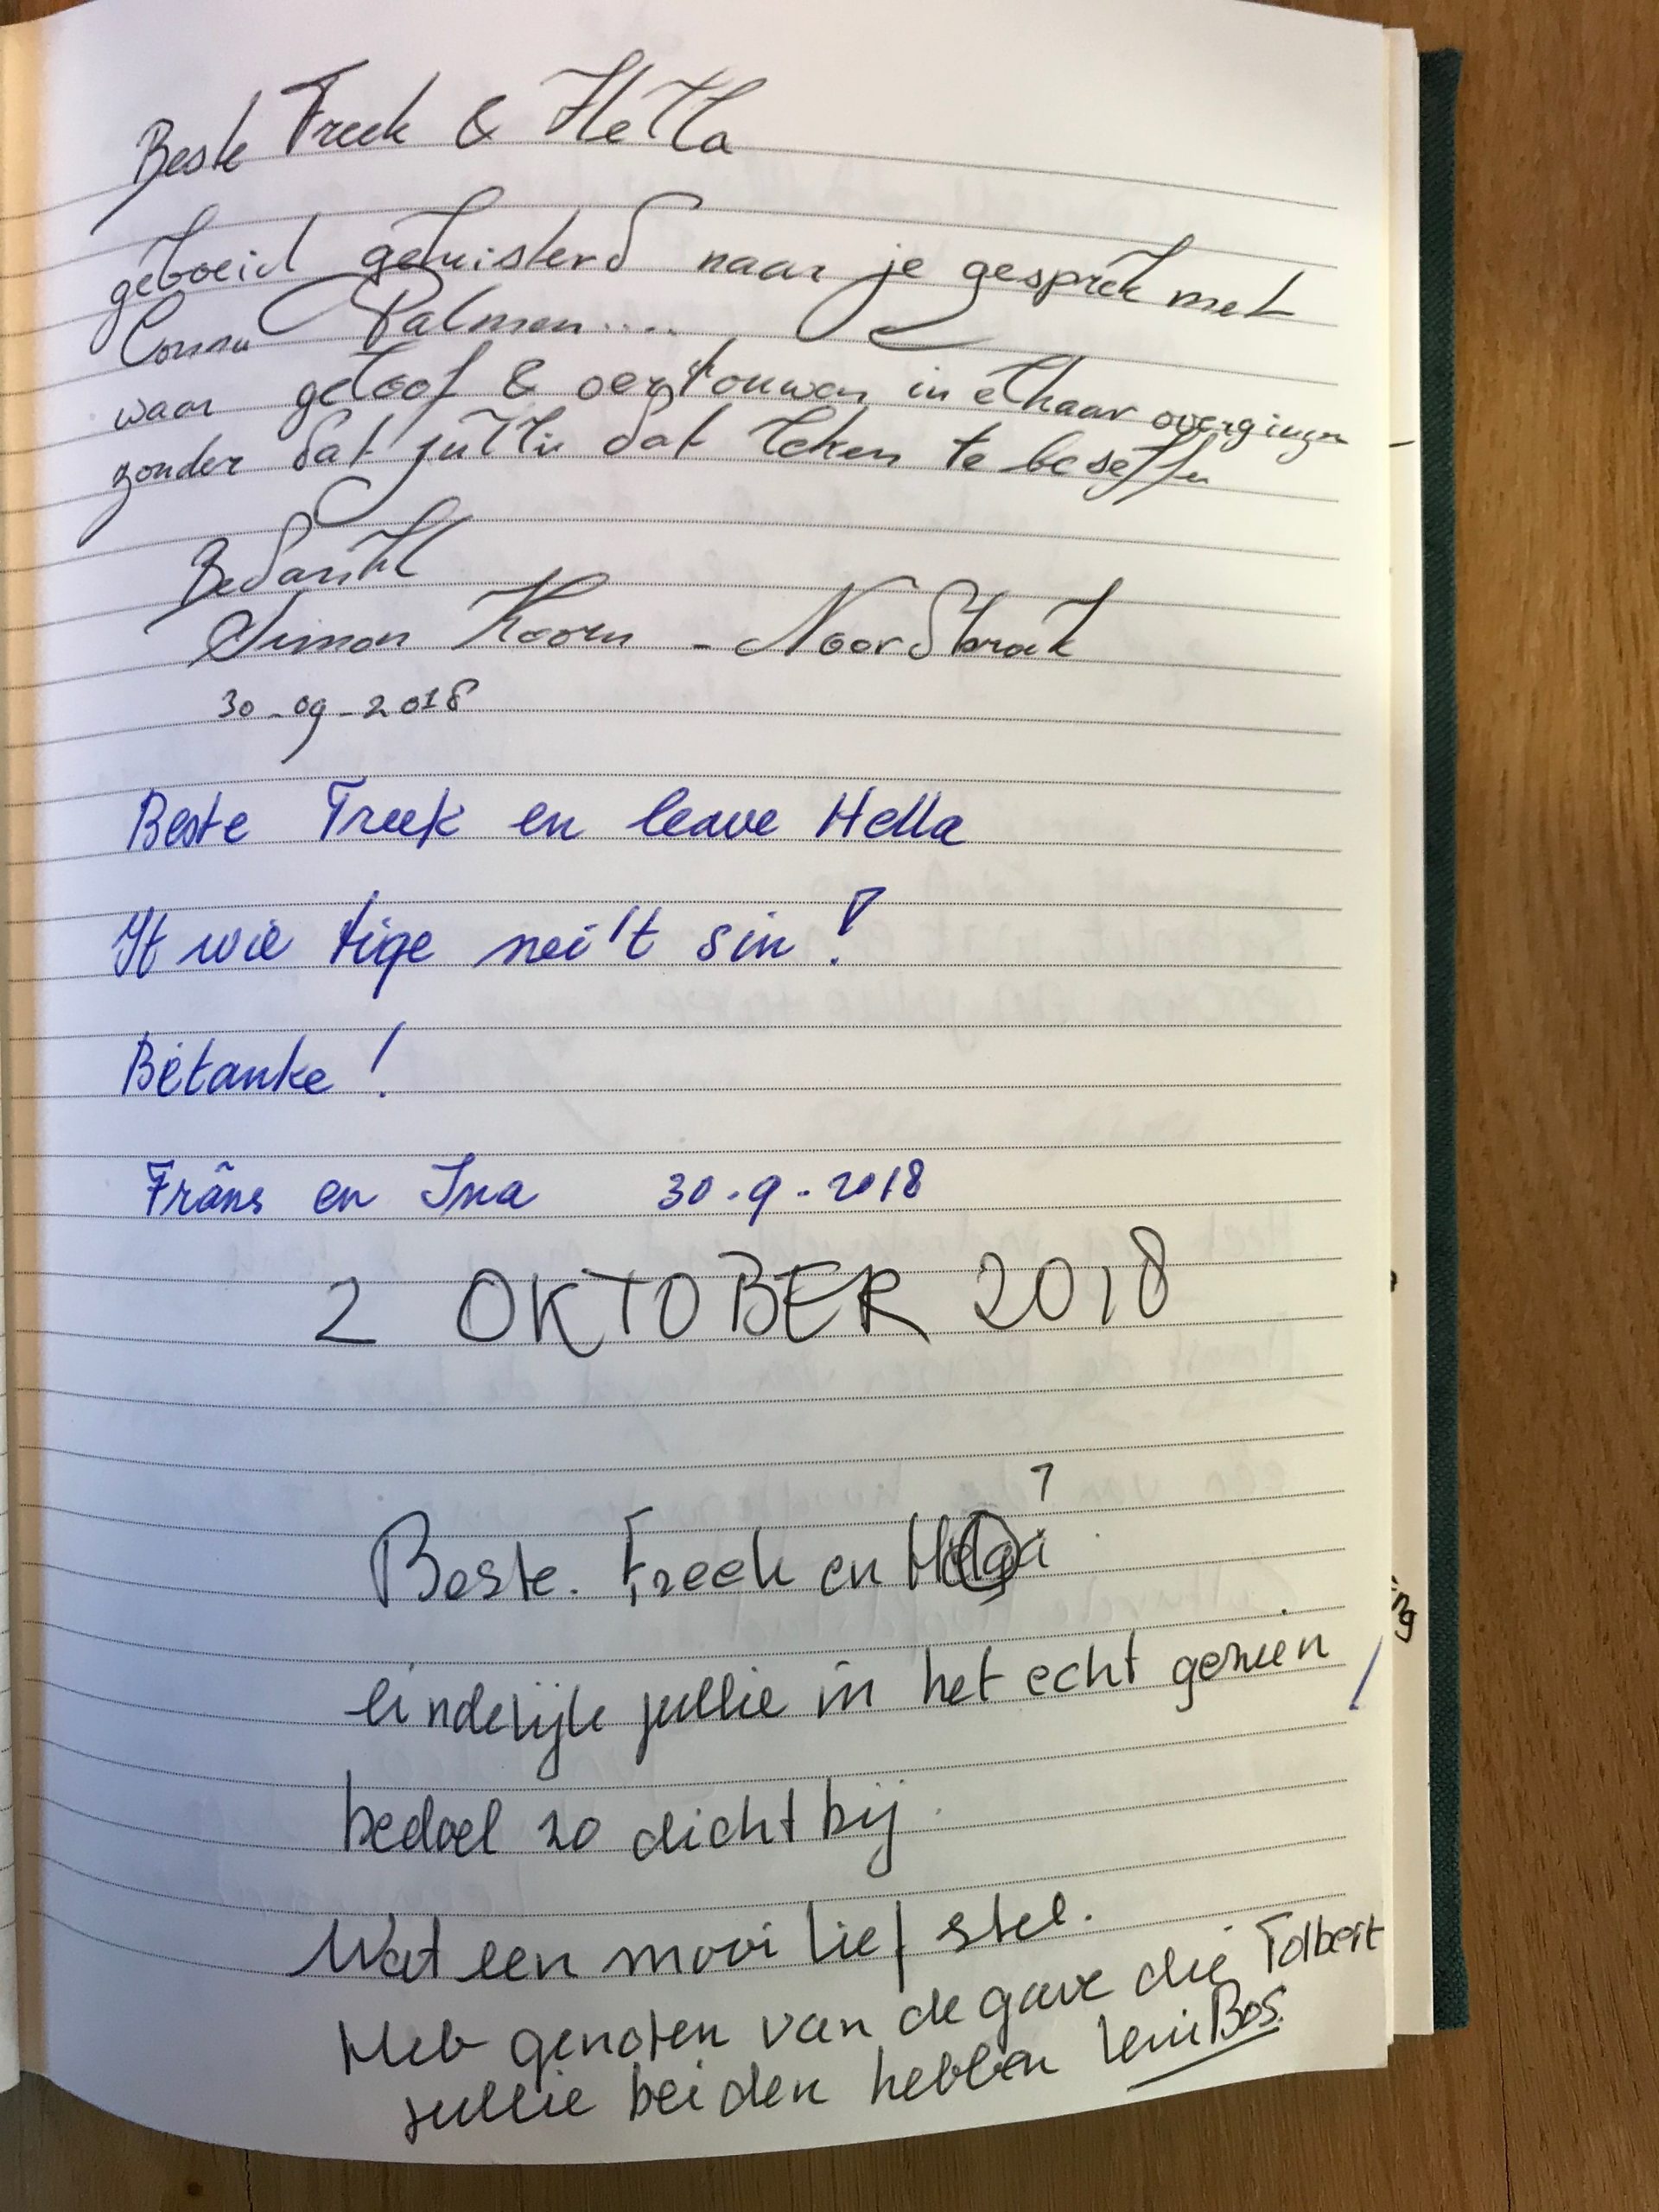 Beste Freek & Hella
geboeid geluisterd naar je gesprek met
Connie Palmen....
waar geloof & vertrouwen in elkaar overgingen
zonder dat jullie dat leken te beseffen
Bedankt
Simon Koorn - Noordbroek
30-09-2018
Beste Freek en leave Hella
It wie tige nei't sin!
Betanke!
Frâns en Ina 30-9-2018
2 OKTOBER 2018
?
Beste. Freek en Hella
eindelijk jullie in het echt gezien
bedoel zo dichtbij.
Wat een mooi lief stel.
Heb genoten van de gave die
jullie beiden hebben Leni Bos.
Tolbert